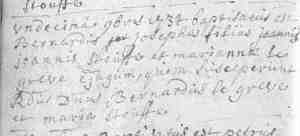 Stouffs
undecima 9bris 1737 baptisatus est
Bernardus Josephus filius joannis
joannis Stouffs et mariannæ le
greve conjugum, quem susceperunt
Rdus Dnus Bernardus le greve
et maria Stouffs
baptisatus est petrus